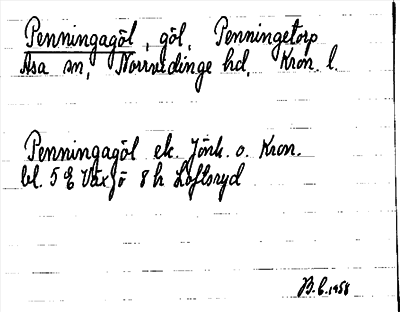 Penningagöl, göl, Penningetorp
Åsa sn, Norrvidinge hd, Kron. l.
Penningagöl ek. Jönk. o. Kron.
bl. 5 E Växjö 8 h Loftsryd
B.E. 1958